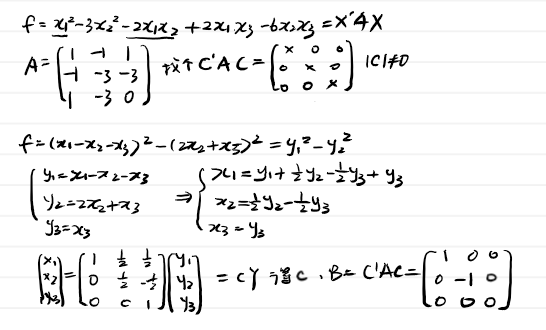 f = x₁²-3x₂²-2x₁x₂+2x₁x₃-6x₂x₃ = X'AX
A = (1 -1 1; -1 -3 -3; 1 -3 0) 找个 C'AC = (× 0 0; 0 × 0; 0 0 ×) |C|≠0
f = (x₁-x₂-x₃)²-(2x₂+x₃)² = y₁²-y₂²
{ y₁=x₁-x₂-x₃ ⇒ { x₁=y₁+½y₂-½y₃+y₃
y₂=2x₂+x₃ x₂=½y₂-½y₃
y₃=x₃ x₃=y₃
(x₁; x₂; x₃) = (1 ½ ½; 0 ½ -½; 0 0 1)(y₁; y₂; y₃) = CY 得C. B = C'AC = (1 0 0; 0 -1 0; 0 0 0)